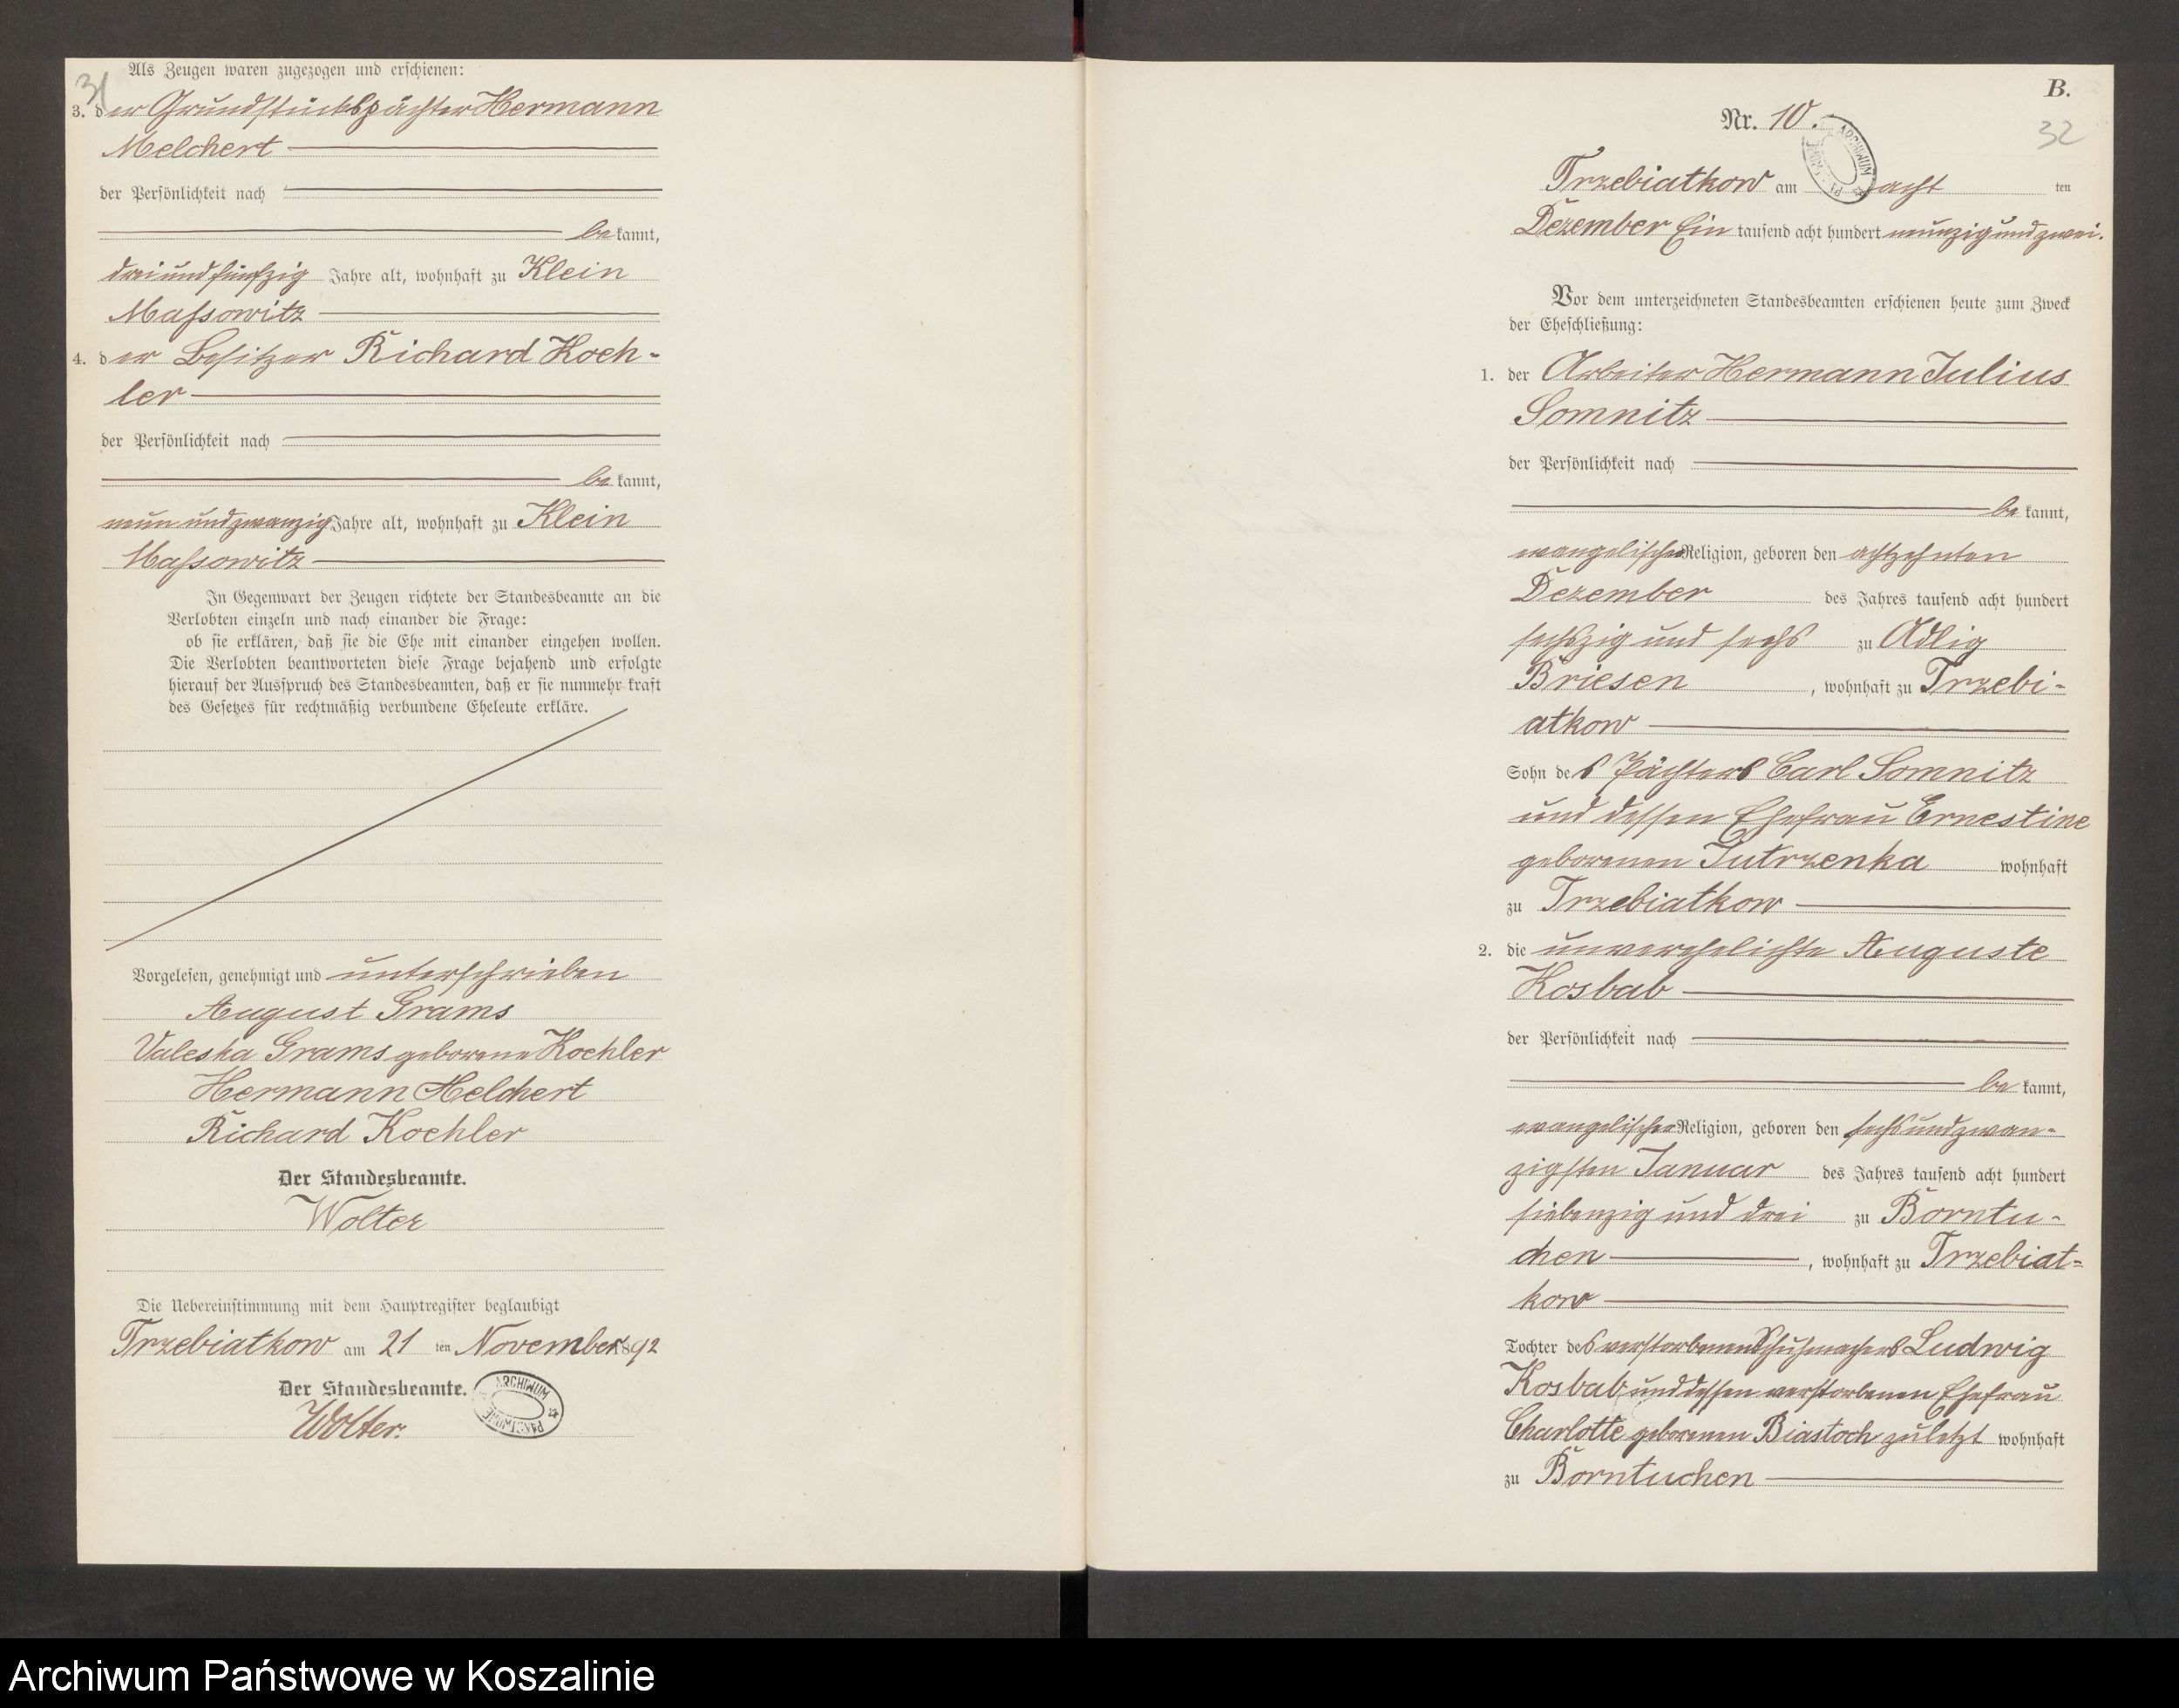 Als Zeugen waren zugezogen und erschienen:
31
3. der Grundstückspächter Hermann
Melchert
der Persönlichkeit nach
bekannt,
drei und fünfzig Jahre alt, wohnhaft zu Klein
Massowitz
4. der Besitzer Richard Koeh-
ler
der Persönlichkeit nach
bekannt,
neun und zwanzig Jahre alt, wohnhaft zu Klein
Massowitz
In Gegenwart der Zeugen richtete der Standesbeamte an die
Verlobten einzeln und nach einander die Frage:
ob sie erklären, daß sie die Ehe mit einander eingehen wollen.
Die Verlobten beantworteten diese Frage bejahend und erfolgte
hierauf der Ausspruch des Standesbeamten, daß er sie nunmehr kraft
des Gesetzes für rechtmäßig verbundene Eheleute erkläre.
Vorgelesen, genehmigt und unterschrieben
August Grams
Valeska Grams geborene Koehler
Hermann Melchert
Richard Koehler
Der Standesbeamte.
Wolter
Die Uebereinstimmung mit dem Hauptregister beglaubigt
Trzebiatkow am 21 ten November 1892
Der Standesbeamte.
Wolter.
ARCHIWUM PAŃSTWOWE
B.
Nr. 10.
32
ARCHIWUM
Trzebiatkow am acht ten
Dezember Ein tausend acht hundert neunzig und zwei.
Vor dem unterzeichneten Standesbeamten erschienen heute zum Zweck
der Eheschließung:
1. der Arbeiter Hermann Julius
Somnitz
der Persönlichkeit nach
bekannt,
evangelischer Religion, geboren den achtzehnten
Dezember des Jahres tausend acht hundert
sechszig und sechs zu Adlig
Briesen, wohnhaft zu Trzebi-
atkow
Sohn des Pächters Carl Somnitz
und dessen Ehefrau Ernestine
geborenen Jutrzenka wohnhaft
zu Trzebiatkow
2. die unverehelichte Auguste
Kosbab
der Persönlichkeit nach
bekannt,
evangelischer Religion, geboren den sechsundzwan-
zigsten Januar des Jahres tausend acht hundert
siebenzig und drei zu Borntu-
chen, wohnhaft zu Trzebiat-
kow
Tochter des verstorbenen Schuhmachers Ludwig
Kosbab und dessen verstorbenen Ehefrau
Charlotte geborenen Biastoch zuletzt wohnhaft
zu Borntuchen
Archiwum Państwowe w Koszalinie